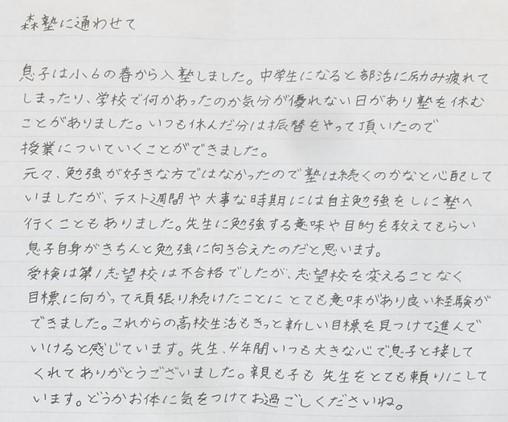 森塾に通わせて
息子は小6の春から入塾しました。中学生になると部活に励み疲れて
しまったり、学校で何かあったのか気分が優れない日があり塾を休む
ことがありました。いつも休んだ分は振替をやって頂いたので
授業についていくことができました。
元々、勉強が好きな方ではなかったので塾は続くのかなと心配して
いましたが、テスト週間や大事な時期には自主勉強をしに塾へ
行くこともありました。先生に勉強する意味や目的を教えてもらい
息子自身がきちんと勉強に向き合えたのだと思います。
受検は第1志望校は不合格でしたが、志望校を変えることなく
目標に向かって頑張り続けたことにとても意味があり良い経験が
できました。これからの高校生活もきっと新しい目標を見つけて進んで
いけると感じています。先生、4年間いつも大きな心で息子と接して
くれてありがとうございました。親も子も先生をとても頼りにして
います。どうかお体に気をつけてお過ごしくださいね。